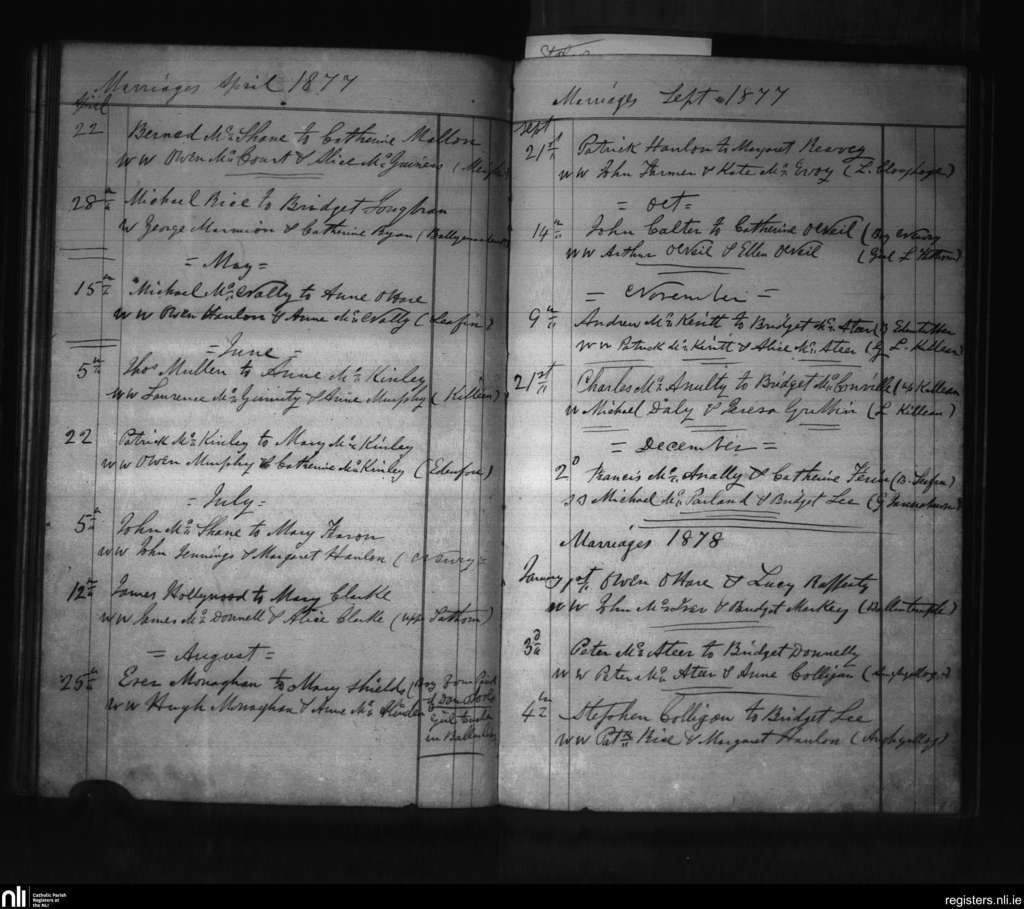 Marriages April 1877
April
22 Bernard Mc Shane to Catherine Mallon
w w Owen Mc Court & Alice Mc
28th Michael Rice to Bridget Loughran
w George Marmion & Catherine Ryan
= May =
15th Michael Mc Nally to Anne O'Hare
w w Owen Hanlon & Anne Mc Nally (Leafin)
= June =
5th Thos Mullen to Anne Mc Kinley
w w Laurence Mc Guinity & Anne Murphy (Killeen)
22 Patrick Mc Kinley to Mary Mc Kinley
w w Owen Murphy & Catherine Mc Kinley
= July =
5th John Mc Shane to Mary
w w John Jennings & Margaret Hanlon (Newry =
12th James Hollywood to Mary Clarke
w w James Mc Donnell & Alice Clarke (upp Fathom)
= August =
25th Monaghan to Mary Shields (Boy from
w w Hugh Monaghan & Anne Mc
in
Marriages Sept = 1877
Sept
21st Patrick Hanlon to Margaret Reavey
w w John & Kate Mc Evoy (L. Cloughoge)
= Oct =
14th John Calter to Catherine O'Neil (Boy Newry
w w Arthur O'Neil & Ellen O'Neil (Girl L Fathom)
= November =
9th Andrew Mc Kevitt to Bridget Mc Ateer
w w Patrick Mc Kevitt & Alice Mc Ateer (G L. Killean)
21st Charles Mc Anulty to Bridget Mc Conville (up Killean
w Michael Daly & Teresa Griffin (L Killean)
= December =
2d Francis Mc Anally & Catherine
ss Michael Mc Parland & Bridget Lee
Marriages 1878
January 1st Owen O'Hare & Lucy Rafferty
w w John & Bridget Markey (Ballintemple)
3d Peter Mc Ateer to Bridget Donnelly
w w Peter Mc Ateer & Anne Colligan
4th Stephen Colligan to Bridget Lee
w w Patk Rice & Margaret Hanlon
nli Catholic Parish
Registers at
the NLI
registers.nli.ie